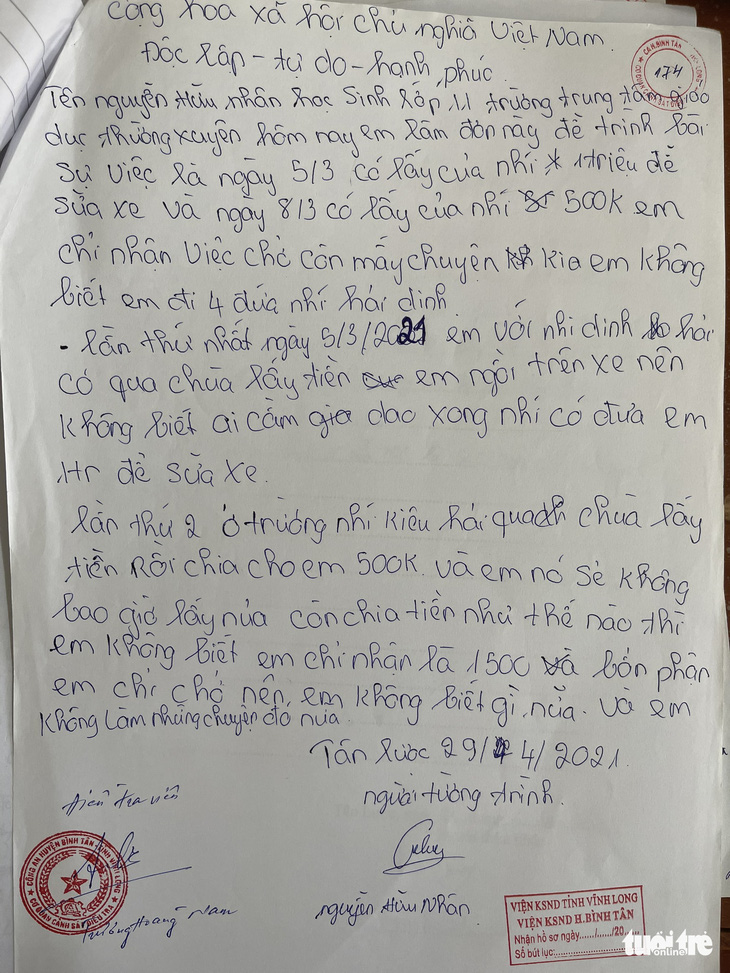 cộng hoa xã hội chủ nghĩa Việt Nam.
Độc lập - tự do - hạnh phúc.
174
Tên nguyễn Hữu nhân học sinh lớp 11 trường trung tâm giáo
dục thường xuyên hôm nay em làm đơn này để trình bài
sự việc là ngày 5/3 có lấy của nhí 1triệu để
sửa xe và ngày 8/3 có lấy của nhí 500k em
chỉ nhận việc chở còn mấy chuyện kia em không
biết em đi 4 đứa nhí hải dinh.
- lần thứ nhất ngày 5/3/2021 em với nhi dinh hải
có qua chùa lấy tiền em ngồi trên xe nên
không biết ai cầm dao xong nhí có đưa em
1tr để sửa xe.
lần thứ 2 ở trường nhí kiêu hải qua chùa lấy
tiền Rồi chia cho em 500k. và em nó sẻ không
bao giờ lấy nửa còn chia tiền như thế nào thì
em không biết em chỉ nhận là 1500 và bổn phận
em chỉ chở nên em không biết gì nửa. và em
không làm những chuyện đó nửa.
Tân lược 29/4/2021.
điều tra viên
người tường trình.
CÔNG AN HUYỆN BÌNH TÂN TỈNH VĨNH LONG
CƠ QUAN CẢNH SÁT ĐIỀU TRA
Trương Hoàng Nam
nguyễn Hữu Nhân.
VIỆN KSND TỈNH VĨNH LONG
VIỆN KSND H.BÌNH TÂN
Nhận hồ sơ ngày....../....../20......
Số bút lục:
tuổi trẻ
online